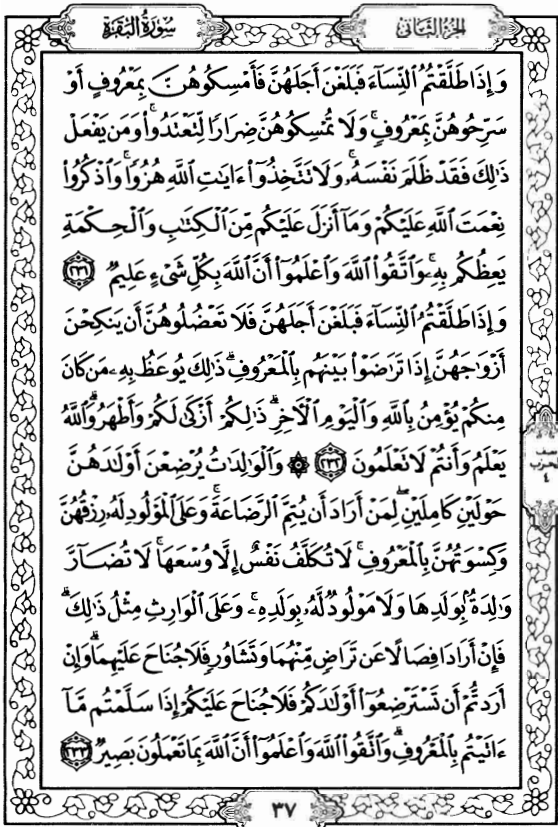 سُورَةُ البَقَرَةِ
الجُزءُ الثَّانِي
وَإِذَا طَلَّقْتُمُ ٱلنِّسَآءَ فَبَلَغْنَ أَجَلَهُنَّ فَأَمْسِكُوهُنَّ بِمَعْرُوفٍ أَوْ
سَرِّحُوهُنَّ بِمَعْرُوفٍۚ وَلَا تُمْسِكُوهُنَّ ضِرَارًا لِّتَعْتَدُوا۟ۚ وَمَن يَفْعَلْ
ذَٰلِكَ فَقَدْ ظَلَمَ نَفْسَهُۥۚ وَلَا تَتَّخِذُوٓا۟ ءَايَٰتِ ٱللَّهِ هُزُوًاۚ وَٱذْكُرُوا۟
نِعْمَتَ ٱللَّهِ عَلَيْكُمْ وَمَآ أَنزَلَ عَلَيْكُم مِّنَ ٱلْكِتَٰبِ وَٱلْحِكْمَةِ
يَعِظُكُم بِهِۦۚ وَٱتَّقُوا۟ ٱللَّهَ وَٱعْلَمُوٓا۟ أَنَّ ٱللَّهَ بِكُلِّ شَىْءٍ عَلِيمٌ ٢٣١
وَإِذَا طَلَّقْتُمُ ٱلنِّسَآءَ فَبَلَغْنَ أَجَلَهُنَّ فَلَا تَعْضُلُوهُنَّ أَن يَنكِحْنَ
أَزْوَٰجَهُنَّ إِذَا تَرَٰضَوْا۟ بَيْنَهُم بِٱلْمَعْرُوفِۗ ذَٰلِكَ يُوعَظُ بِهِۦ مَن كَانَ
مِنكُمْ يُؤْمِنُ بِٱللَّهِ وَٱلْيَوْمِ ٱلْءَاخِرِۗ ذَٰلِكُمْ أَزْكَىٰ لَكُمْ وَأَطْهَرُۗ وَٱللَّهُ
يَعْلَمُ وَأَنتُمْ لَا تَعْلَمُونَ ٢٣٢ ۞ وَٱلْوَٰلِدَٰتُ يُرْضِعْنَ أَوْلَٰدَهُنَّ
حَوْلَيْنِ كَامِلَيْنِۖ لِمَنْ أَرَادَ أَن يُتِمَّ ٱلرَّضَاعَةَۚ وَعَلَى ٱلْمَوْلُودِ لَهُۥ رِزْقُهُنَّ
وَكِسْوَتُهُنَّ بِٱلْمَعْرُوفِۚ لَا تُكَلَّفُ نَفْسٌ إِلَّا وُسْعَهَاۚ لَا تُضَآرَّ
وَٰلِدَةٌۢ بِوَلَدِهَا وَلَا مَوْلُودٌ لَّهُۥ بِوَلَدِهِۦۚ وَعَلَى ٱلْوَارِثِ مِثْلُ ذَٰلِكَۗ
فَإِنْ أَرَادَا فِصَالًا عَن تَرَاضٍ مِّنْهُمَا وَتَشَاوُرٍ فَلَا جُنَاحَ عَلَيْهِمَاۗ وَإِنْ
أَرَدتُّمْ أَن تَسْتَرْضِعُوٓا۟ أَوْلَٰدَكُمْ فَلَا جُنَاحَ عَلَيْكُمْ إِذَا سَلَّمْتُم مَّآ
ءَاتَيْتُم بِٱلْمَعْرُوفِۗ وَٱتَّقُوا۟ ٱللَّهَ وَٱعْلَمُوٓا۟ أَنَّ ٱللَّهَ بِمَا تَعْمَلُونَ بَصِيرٌ ٢٣٣
نصف
الحزب
٤
٣٧